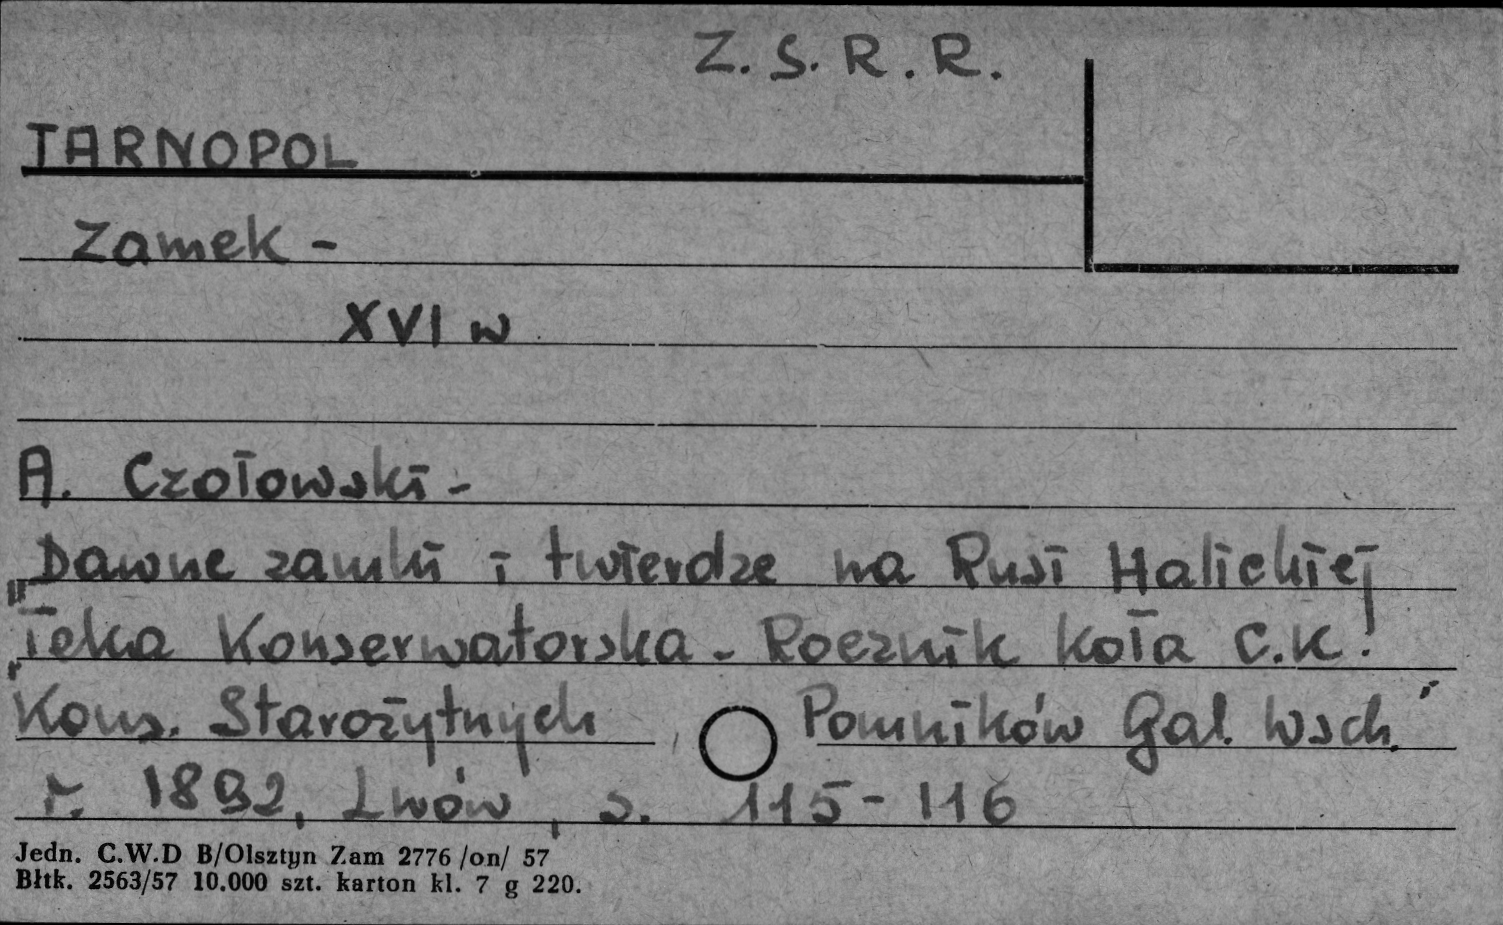 Z. S. R. R.
TARNOPOL
Zamek -
XVI w
A. Czołowski -
Dawne zamki i twierdze na Rusi Halickiej
"Teka Konserwatorska - Rocznik koła C.K.
Kons. Starożytnych i Pomników Gal. Wsch."
r. 1892, Lwów, s. 115-116
Jedn. C.W.D B/Olsztyn Zam 2776 /on/ 57
Błtk. 2563/57 10.000 szt. karton kl. 7 g 220.